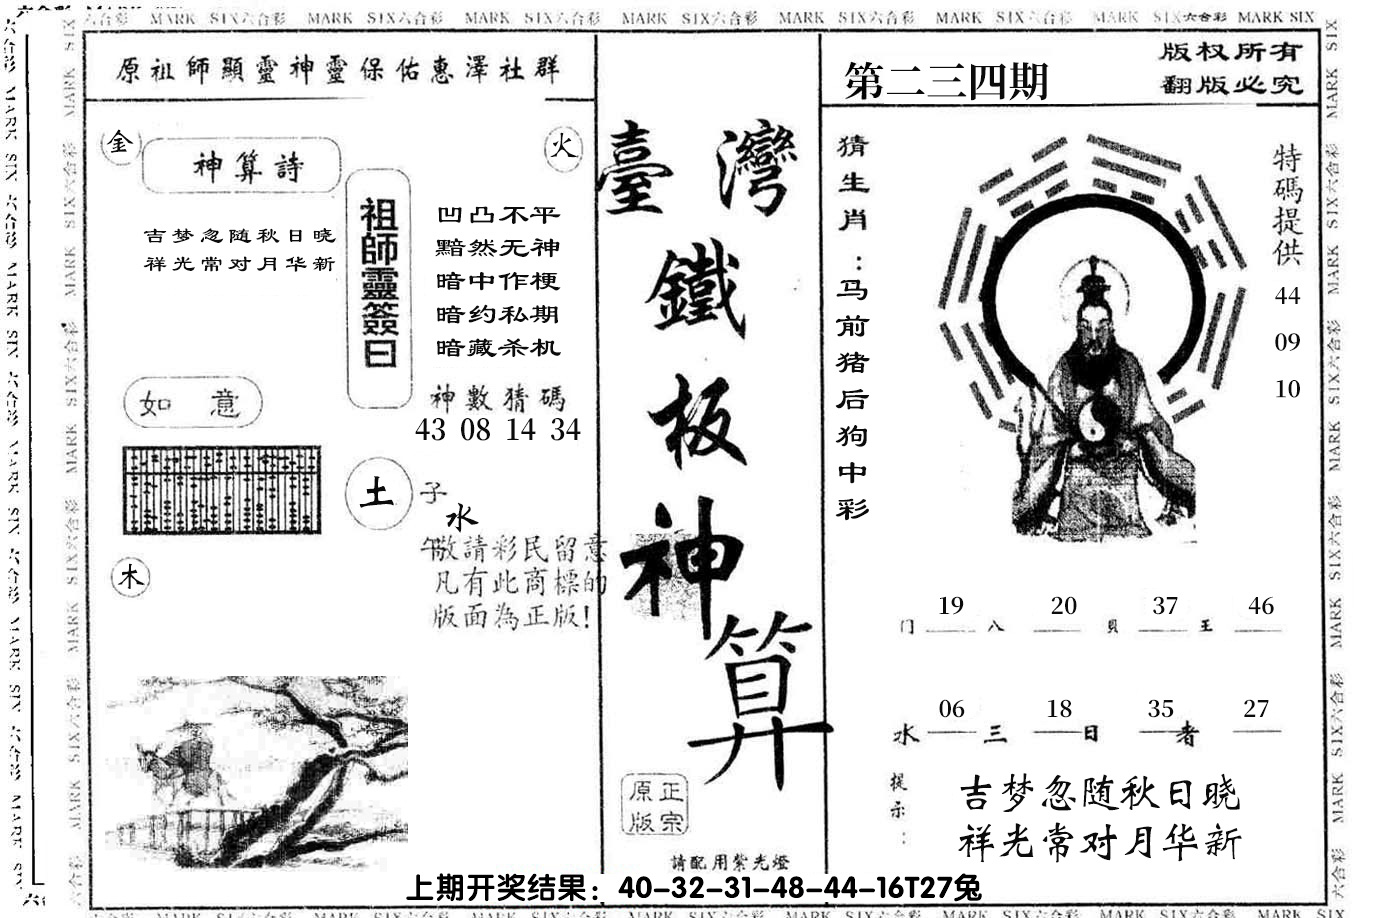 六合彩 MARK SIX六合彩 MARK SIX六合彩 MARK SIX六合彩 MARK SIX六合彩 MARK SIX六合彩 MARK SIX六合彩 MARK SIX六合彩 MARK SIX
原祖師顯靈神靈保佑惠澤社群
金
神算詩
火
吉梦忽随秋日晓
祥光常对月华新
祖師靈簽曰
凹凸不平
黯然无神
暗中作梗
暗约私期
暗藏杀机
神數猜碼
43 08 14 34
如 意
土
子
水
午
木
敬請彩民留意
凡有此商標的
版面為正版!
臺灣
鐵
板
神
算
原正
版宗
請配用紫光燈
第二三四期
版权所有
翻版必究
猜生肖:马前猪后狗中彩
特碼提供
44
09
10
19 20 37 46
门 八 貝 王
06 18 35 27
水 三 日 者
提示:
吉梦忽随秋日晓
祥光常对月华新
上期开奖结果：40-32-31-48-44-16T27兔